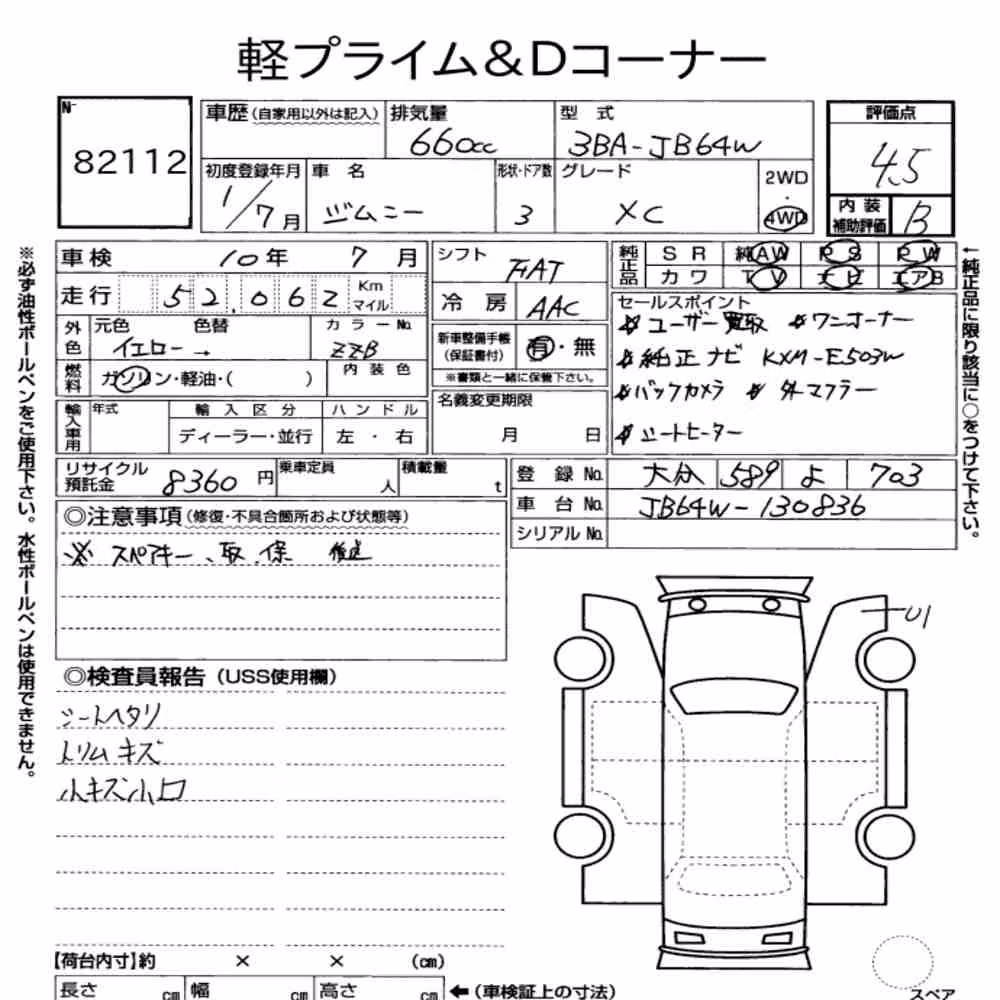 軽プライム&Dコーナー
N-
82112
車歴(自家用以外は記入) 排気量 型式 評価点
660cc 3BA-JB64W 4.5
初度登録年月 車名 形状・ドア数 グレード 2WD・4WD 内装補助評価 B
1/7月 ジムニー 3 XC
車検 10年 7月 シフト FAT 純正品 SR 純AW PS PW
カワ TV ナビ エアB
走行 52,062 Km マイル 冷房 AAC
セールスポイント
外色 元色 色替 カラーNo. 新車整備手帳(保証書付) 有・無
イエロー → ZZB
※書類と一緒に保管下さい。
※ユーザー買取 ※ワンオーナー
※純正ナビ KXM-E503W
※バックカメラ ※外マフラー
※シートヒーター
燃料 ガソリン・軽油・( ) 内装色
名義変更期限
月 日
輸入車用 年式 輸入区分 ハンドル
ディーラー・並行 左・右
リサイクル預託金 8360円 乗車定員 人 積載量 t
登録No. 大分 589 よ 703
車台No. JB64W-130836
シリアルNo.
◎注意事項(修復・不具合箇所および状態等)
※ スペアキー、取、保 後送
◎検査員報告(USS使用欄)
シートヘタリ
トリムキズ
小キズ小凹
U1
【荷台内寸】約 × × (cm)
長さ cm 幅 cm 高さ cm ←(車検証上の寸法)
スペア
※必ず油性ボールペンをご使用下さい。水性ボールペンは使用できません。
←純正品に限り該当に○をつけて下さい。